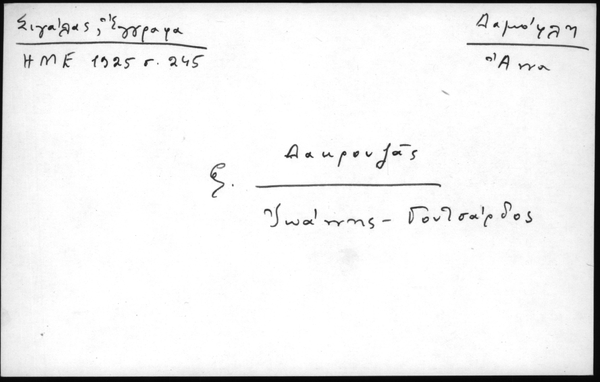 Σιγάλας, Ἔγγραφα
ΗΜΕ 1925 σ. 245
Δαμούλη
Ἄννα
ξ. Δακρουζᾶς
Ἰωάννης - Γουτσάρδος